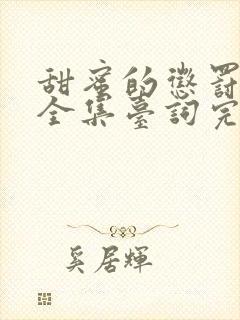 甜蜜的懲罰
全集臺詞完
奚居輝